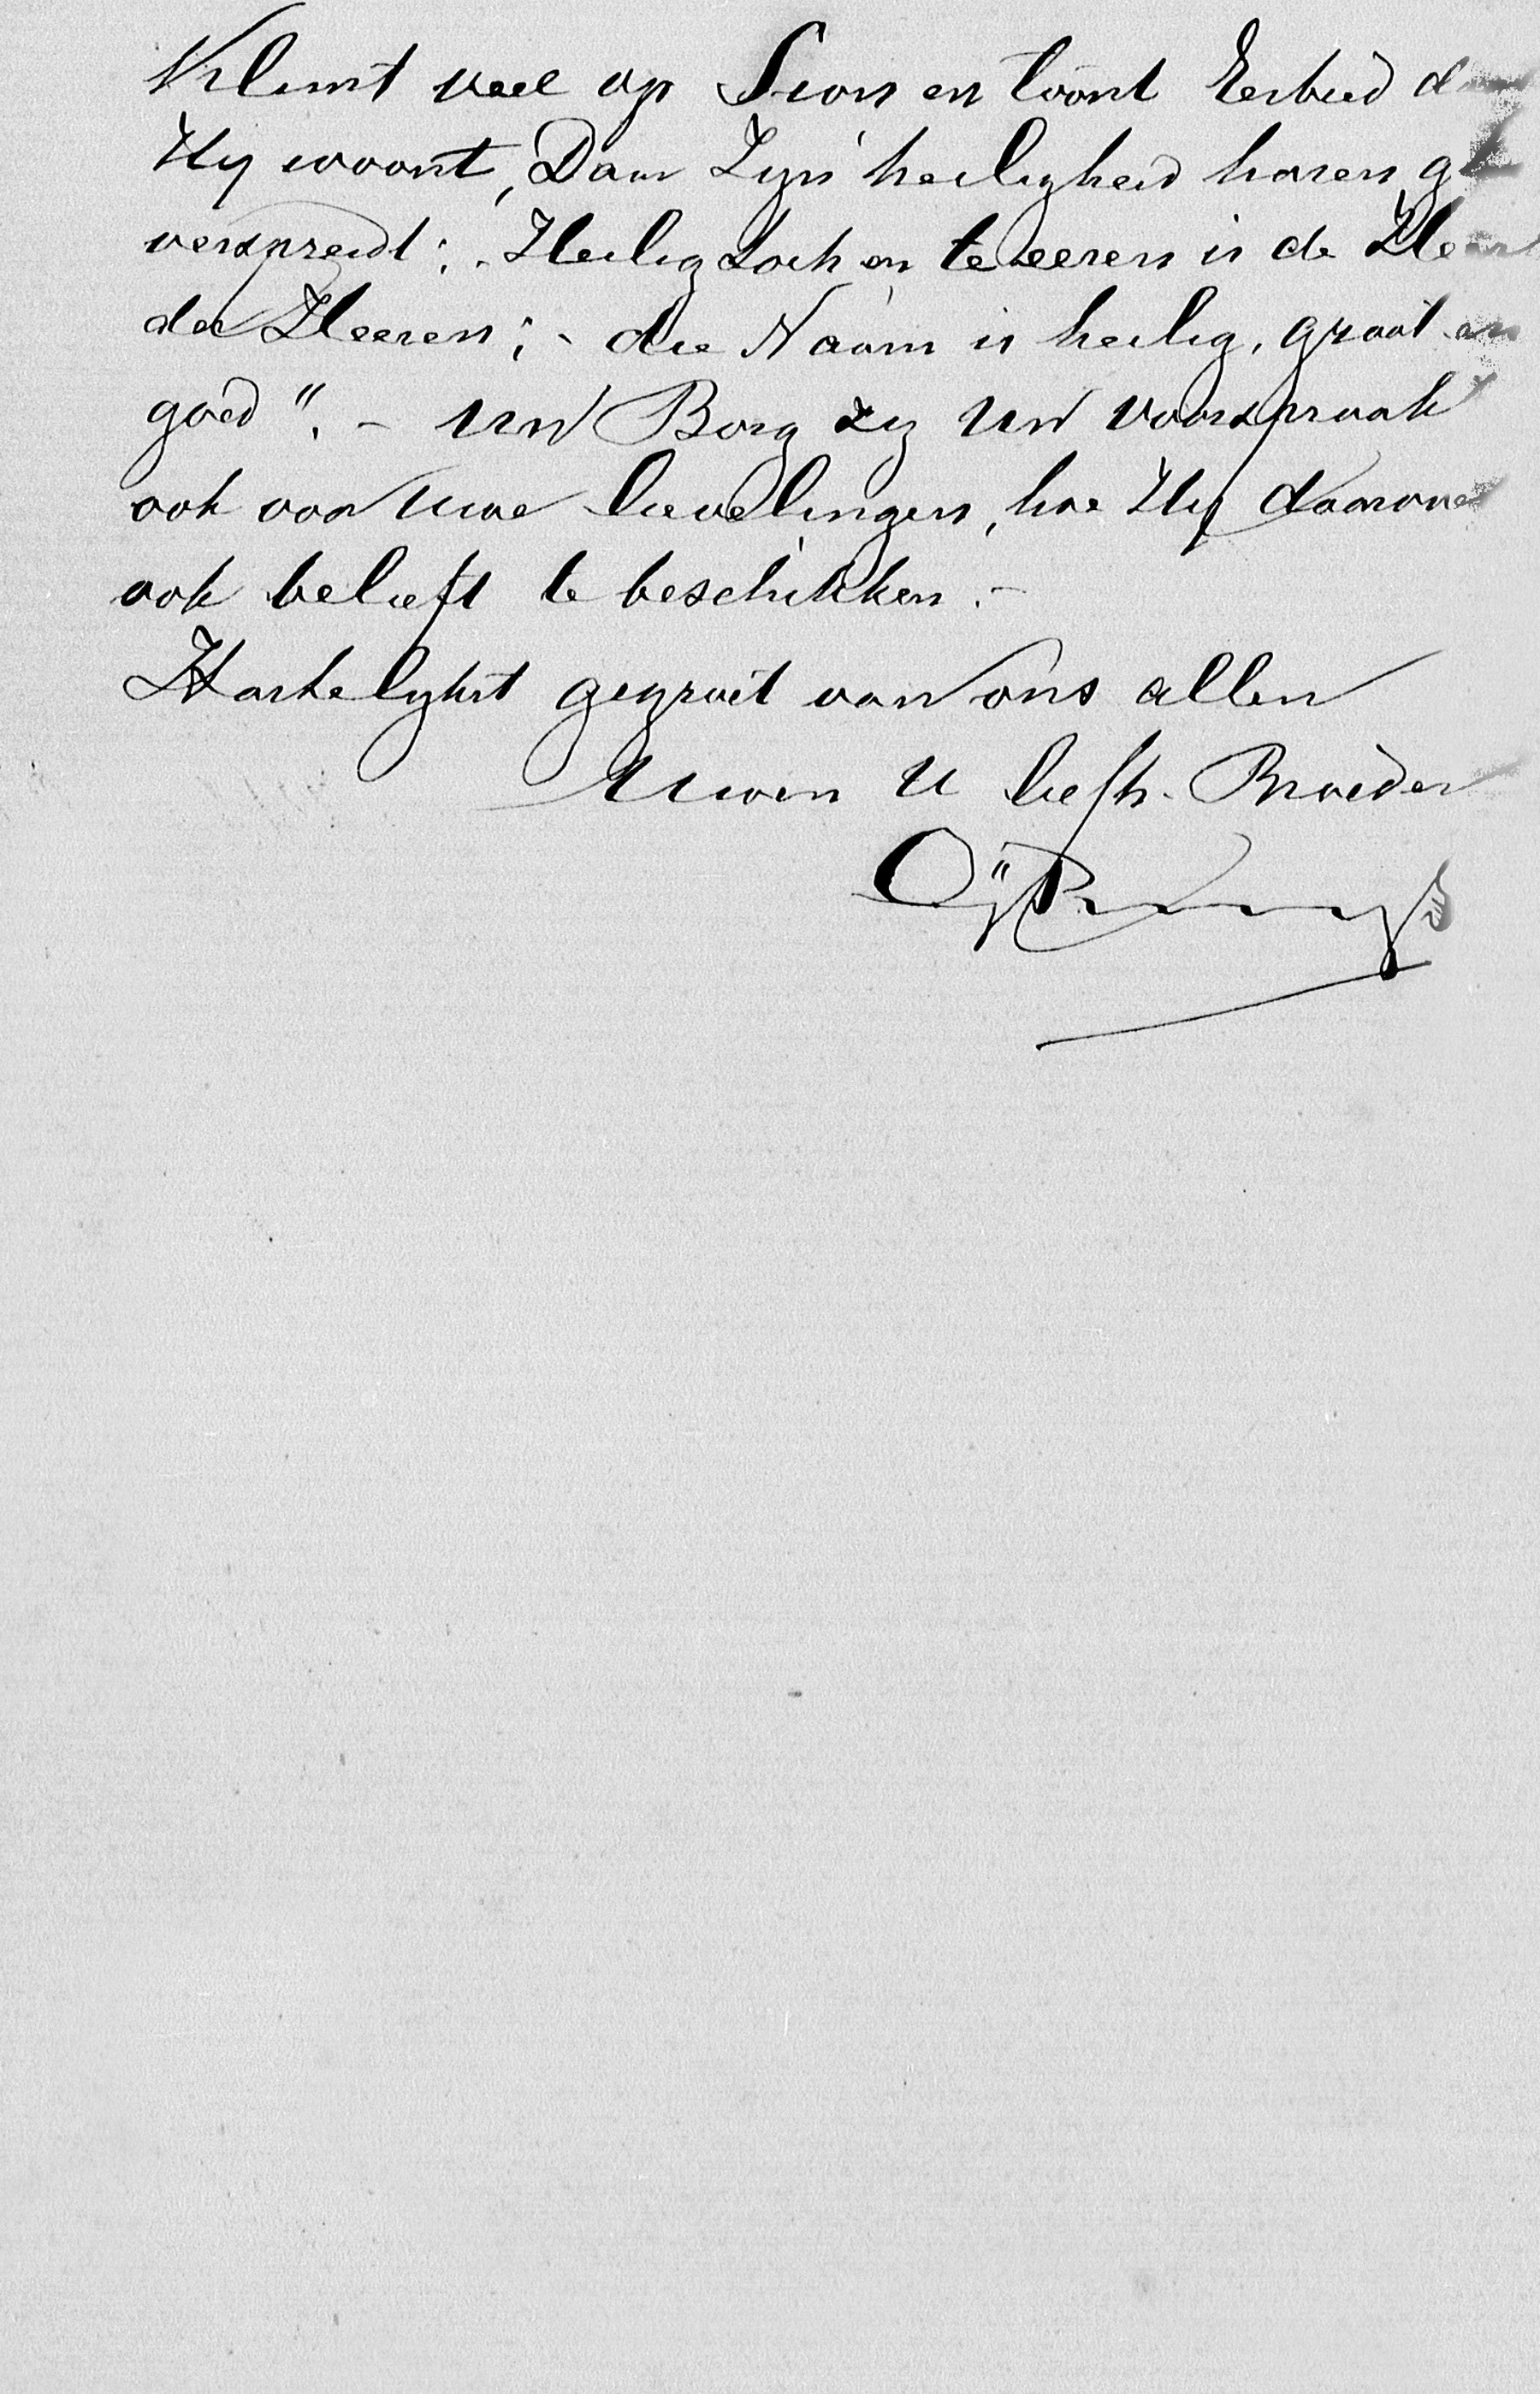 Klimt veel op Sion en toont Eerbied d
Hy woont, Daar Zyn heiligheid haren g
verspreidt: Heilig toch en te eeren is de Heer
der Heeren; - die Naam is heilig, groot en
goed". - Uw Borg zy Uw voorspraak
ook voor Uwe lievelingen, hoe Hy daarover
ook belieft te beschikken. -
Hartelykst gegroet van ons allen
Uwen U liefh. Broeder